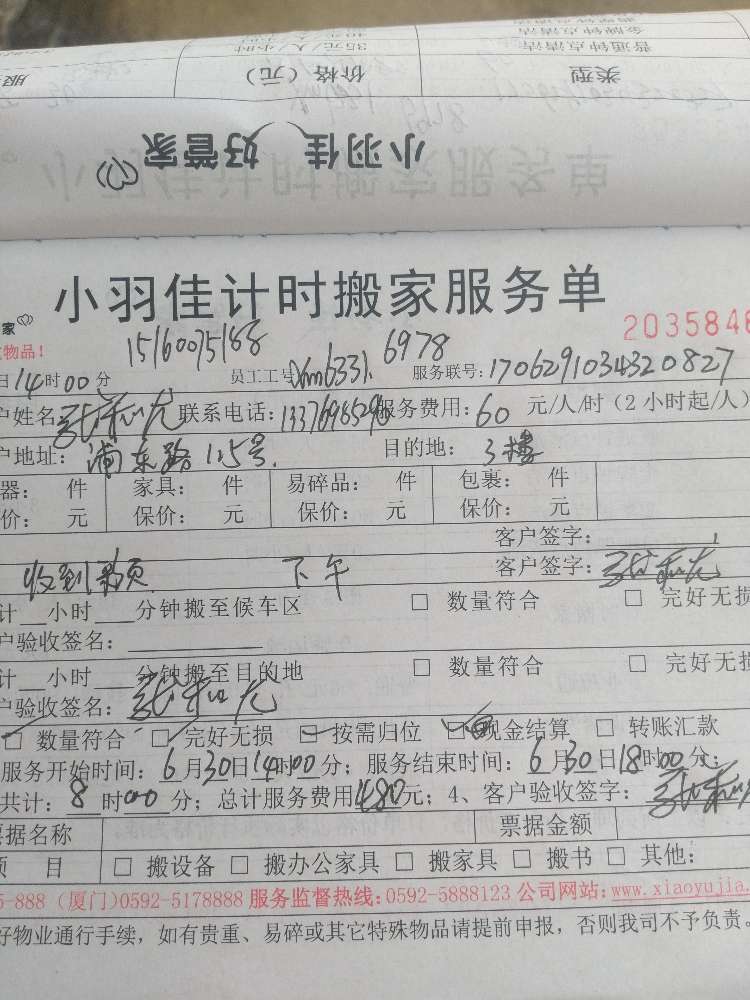 普通钟点清洁 35元/人/小时
类型 价格（元） 服
小羽佳 好管家
小羽佳计时搬家服务单
家 2035846
物品！ 15160075188 6978
日14时00分 员工工号 xm6331. 服务联号：1706291034320827
户姓名 联系电话： 服务费用：60 元/人/时（2小时起/人）
户地址：浦东路115号. 目的地：3楼
器： 件 家具： 件 易碎品： 件 包裹： 件
保价： 元 保价： 元 保价： 元 保价： 元
客户签字：
收到 下午 客户签字：
计 小时 分钟搬至候车区 □ 数量符合 □ 完好无损
户验收签名：
计 小时 分钟搬至目的地 □ 数量符合 □ 完好无损
户验收签名：
□ 数量符合 □ 完好无损 □ 按需归位 □ 现金结算 □ 转账汇款
服务开始时间：6月30日14时00分；服务结束时间：6月30日18时00分；
共计：8时00分；总计服务费用480元；4、客户验收签字：
票据名称 票据金额
项 目 □ 搬设备 □ 搬办公家具 □ 搬家具 □ 搬书 □ 其他：
5-888（厦门）0592-5178888 服务监督热线：0592-5888123 公司网站：www.xiaoyujia.
好物业通行手续，如有贵重、易碎或其它特殊物品请提前申报，否则我司不予负责。